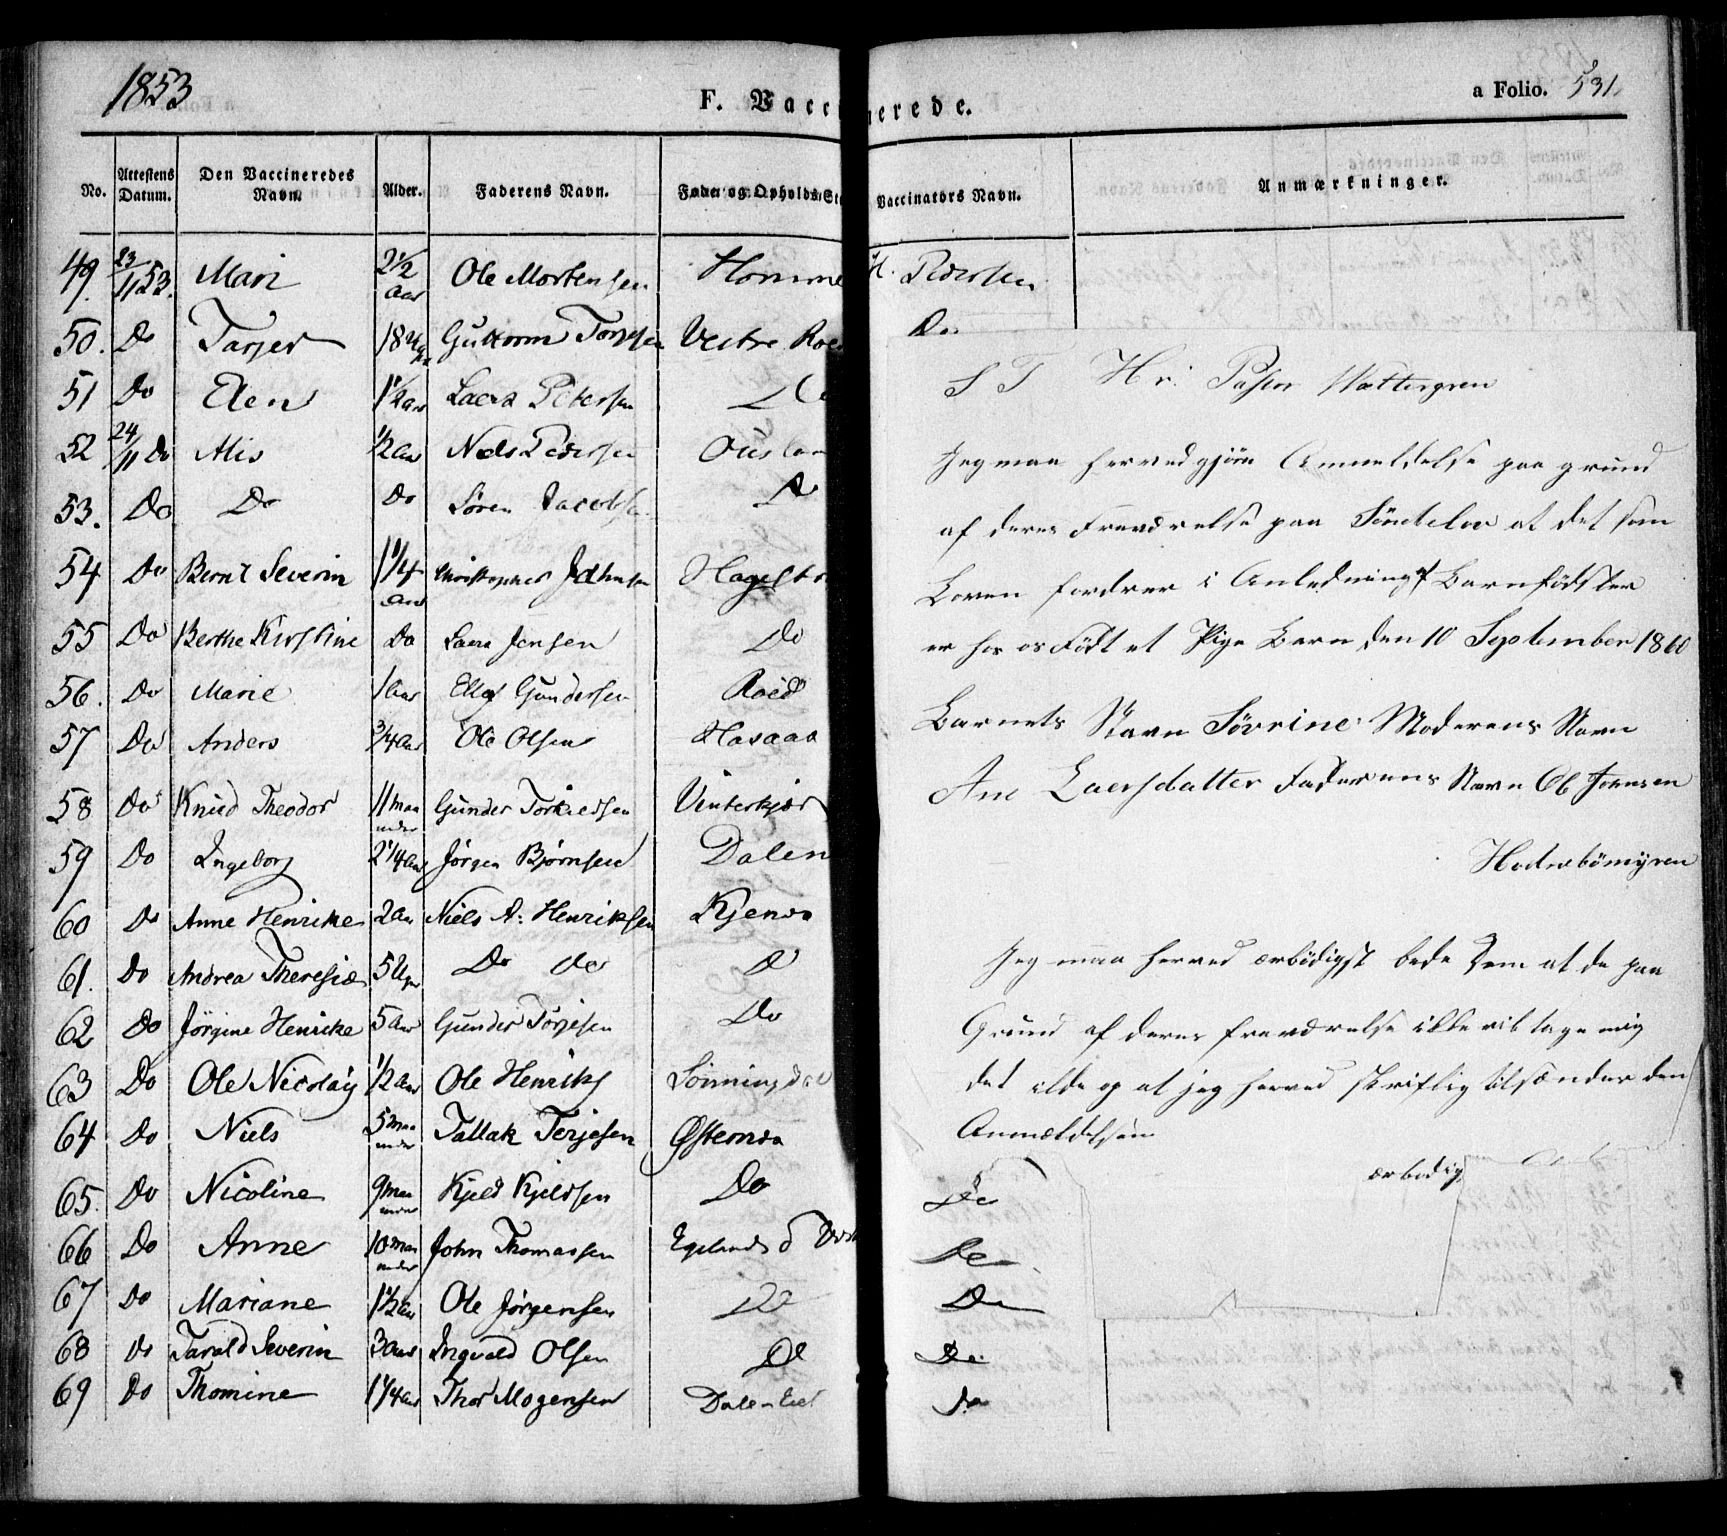 1853
F. Vaccinerede.
a Folio. 531.
No. Attestens Datum. Den Vaccineredes Navn. Alder. Faderens Navn. Føde- og Opholds-St Vaccinators Navn. Anmærkninger.
49. 23/11 53. Mari 2 1/2 Aar Ole Mortensen Homme H. Pedersen
50. Do Tarjer 18 Guttorm Torjesen Vestre Roe Do
51 Do Elen 1 1/2 Aar Laers Petersen Do
52 24/11 Do Alis 1/2 Aar Niels Pedersen Ouslan
53. Do Do Do Søren Jacobse Do
54 Do Bernt Severin 1 1/4 Aar Christopher Johnsen Hagelt
55 Do Berthe Kirstine Do Laers Jensen Do
56. Do Marie 1 Aar Ellef Gundersen Roed
57 Do Anders 3/4 Aar Ole Olsen Hasaas
58 Do Knud Theodor 11 maaneder Gunder Torkildsen Vinterkjær
59 Do Ingeborg 2 1/4 Aar Jørgen Bjørnsen Dalen
60 Do Anne Henrikke 2 Aar Niels A: Henriksen Kjenes
61. Do Andrea Theresia 5 Uger Do Do D
62 Do Jörgine Henrikke 5 Aar Gunder Torjesen Do
63 Do Ole Nicolay 1/2 Aar Ole Henriks Lønningdal
64 Do Niels 5 maaneder Tallak Terjesen Østernes
65. Do Nicoline 9 maaneder Kjeld Kjeldsen Do Do
66 Do Anne 10 maaneder John Thomassen Egelands Do
67 Do Mariane 1 1/2 Aar Ole Jørgensen Do Do
68 Do Tarald Severin 3 Aar Ingvald Olsen Do Do
69 Do Thomine 1 1/4 Aar Thor Mogensen Dalen Do
S T Hr. Paster Wettergren
Jeg maa herved gjöre Anmeldelse paa grund
af deres Fraværelse paa Söndelov at det som
Loven fordrer i Anledning af Barnfödsler
er hos os Födt et Pige Barn den 10 September 1860
Barnets Navn Sövrine Moderens Navn
Ane Laersdatter Faderens Navn Ole Jensen
Hodnebömÿren
Jeg maa herved ærbödigst bede Dem at de paa
Grund af deres fraværelse ikke vil tage mig
det ilde op at jeg herved skriftlig tilsænder den
Anmældelsen
ærbödig